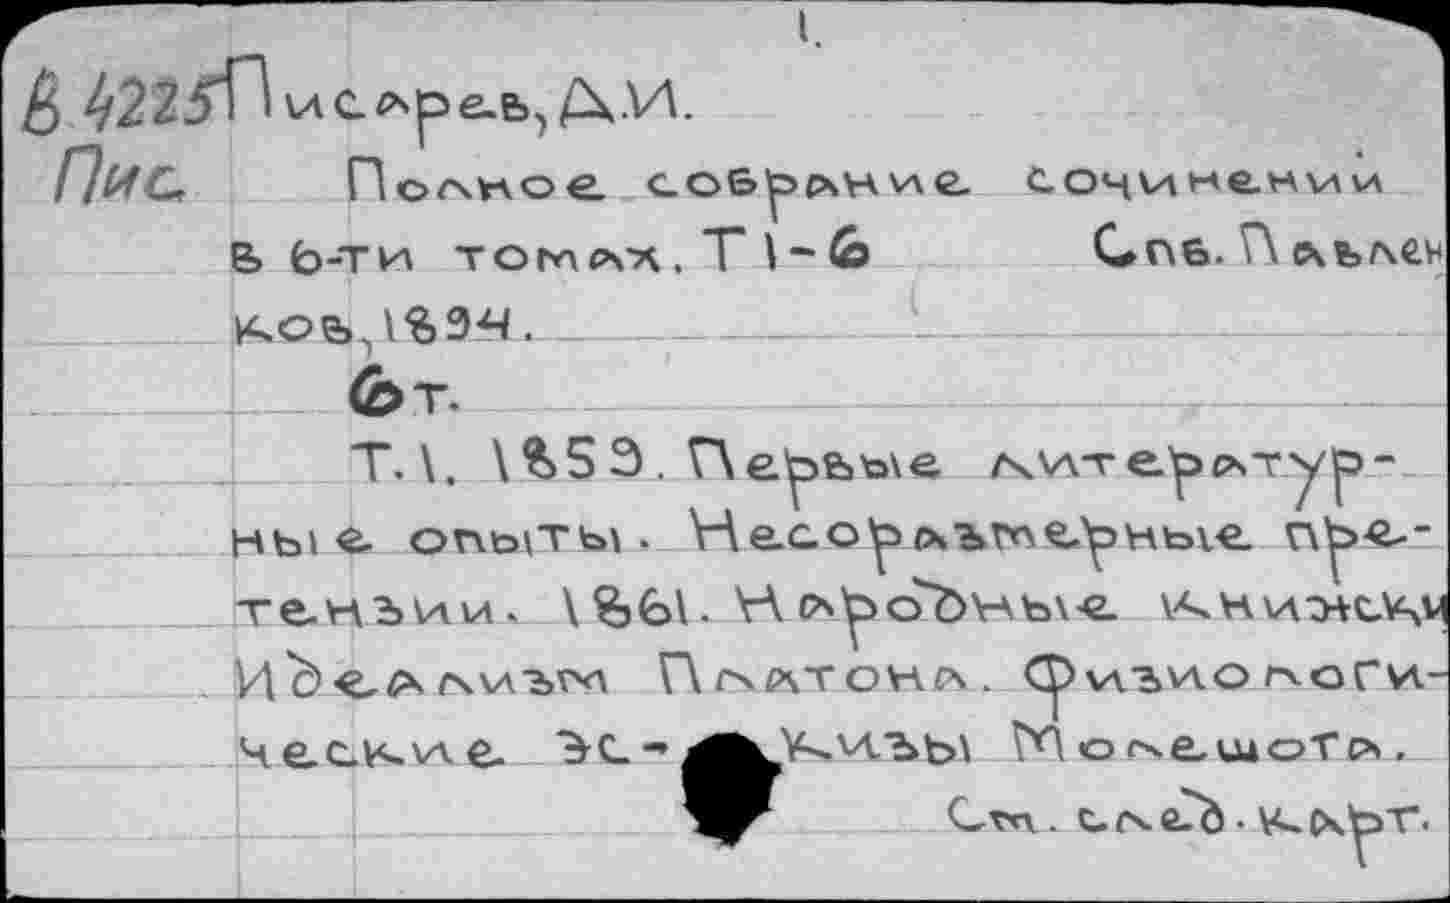 1.
В 4225 Писарев, Д.И.
Пис. Полное собрание сочинений
в 6-ти томах. Т 1-6 Спб. Павлен
ков, 1894.
6 т.
Т.1. 1859. Первые литератур-
ные опыты. Несоразмерные пре-
тензии. 1861. Народные книжки
Идеализм Платона. Физиологи-
ческие эс-кизы Молешота.
См. след. карт.